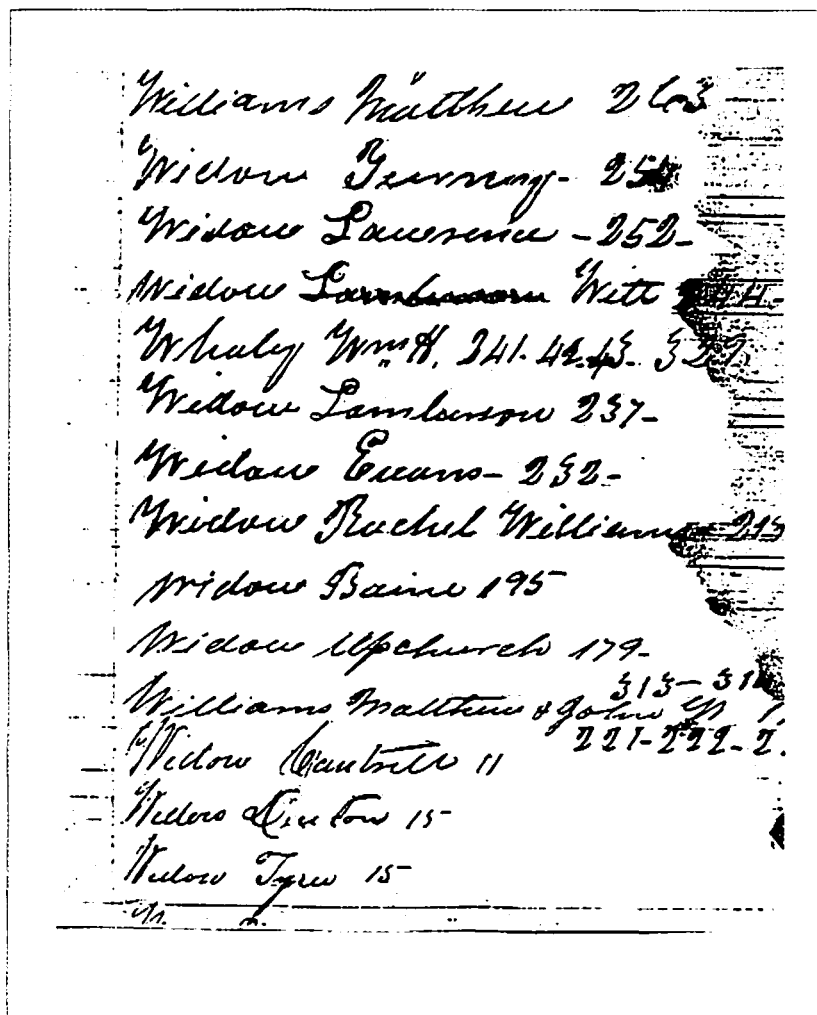 Williams Matthew 263
Widow Gurnony-
Widow Lawerence -252-
Widow Witt
Whaley Wm H. 241-42-43- 329
Widow Lambarson 237-
Widow Evans- 232-
Widow Rachel Williams - 213
Widow Baine 195
Widow Upchurch 179-
313-314
Williams Matthew & John
221-222-2
Widow Cantrell 11
Widow Denton 15
Widow Tyree 15